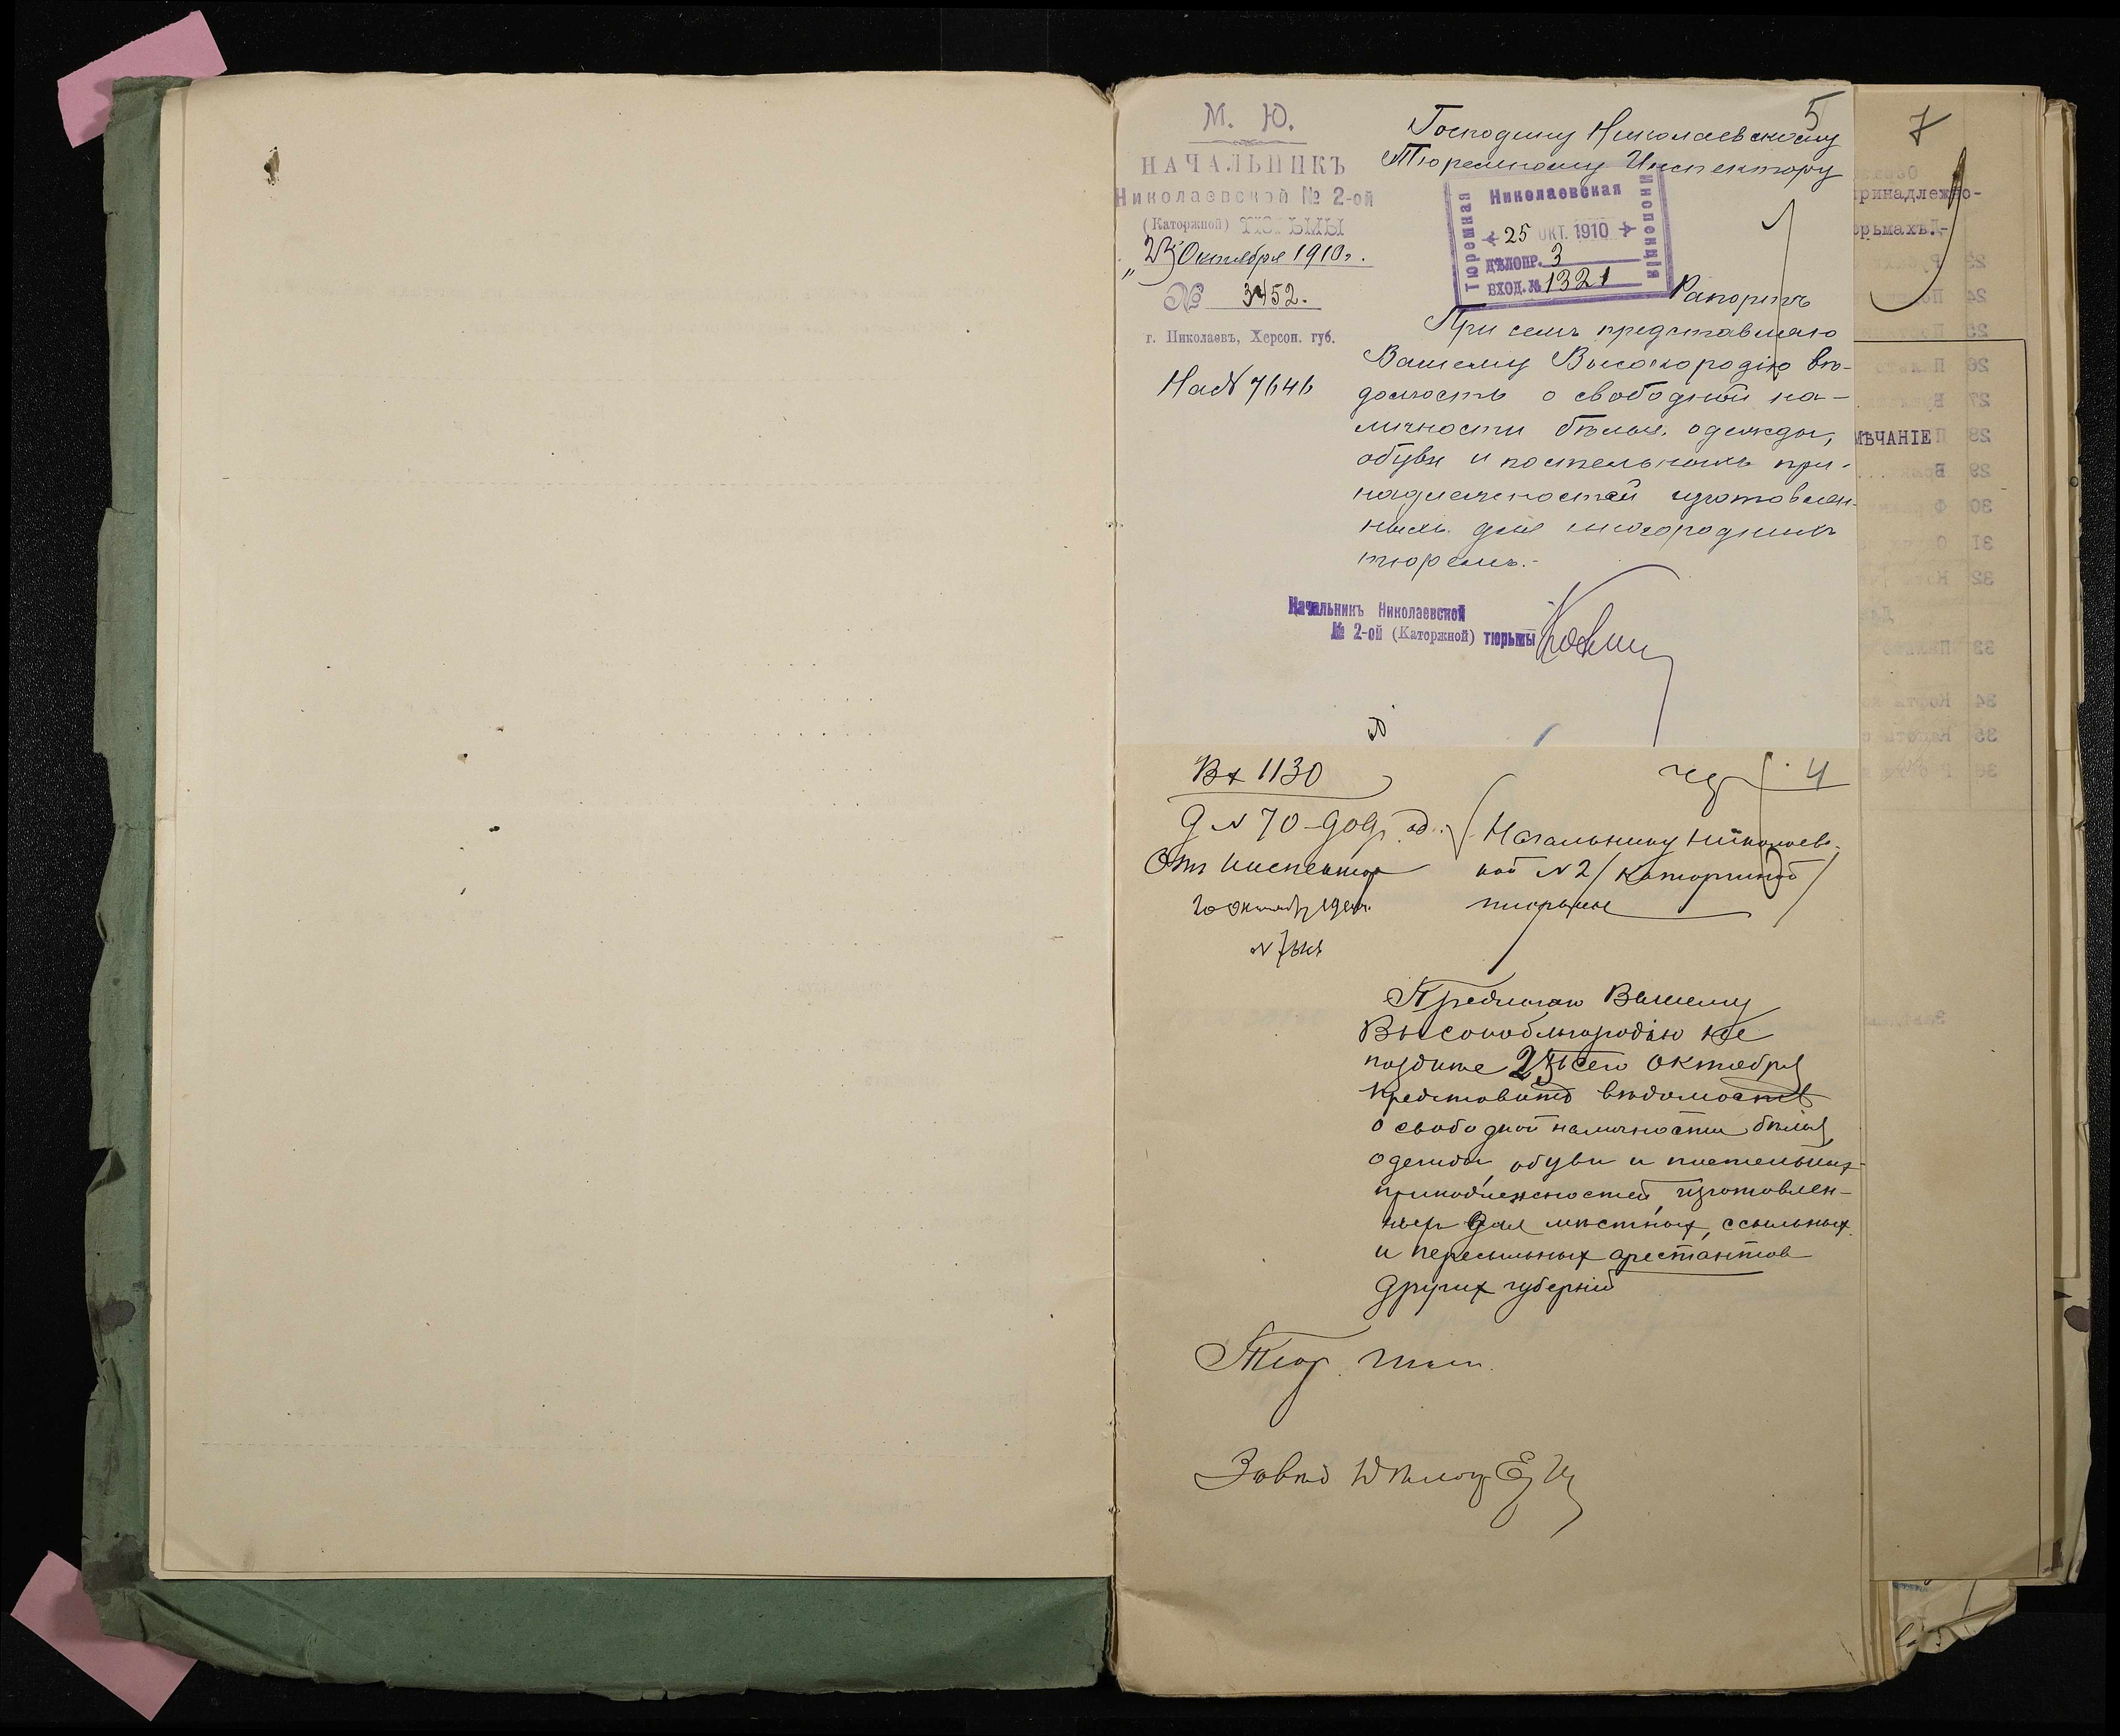 М. Ю.
НАЧАЛЬНИКЪ
Николаевской № 2-ой
(Каторжной) ТЮРЬМЫ
Октября 1910 г.
№ 3452.
г. Николаевъ, Херсон. губ.
На № 7646
5
Господину Николаевскому
Тюремному Инспектору
Тюремная
Николаевская
Инспекція
25 ОКТ. 1910
ДѢЛОПР. 3
ВХОД. № 1321
Рапортъ
При семъ представляю
Вашему Высокородію вѣ-
домость о свободной на-
личности бѣлья, одежды,
обуви и постельныхъ при-
надлежностей изготовлен-
ныхъ для иногороднихъ
тюремъ.-
Начальникъ Николаевской
№ 2-ой (Каторжной) тюрьмы
Вх 1130
4
От Инспектора
20 октября
Начальнику Николаевс-
кой N 2 / Каторжной /
тюрьмы
Предлагаю Вашему
Высокоблагородію не
позднѣе сего октября
представить вѣдомость
о свободной наличности бѣлья,
одежды обуви и постельных
принадлежностей, изготовлен-
ных для мѣстных, ссыльных
и пересыльных арестантов
других губерній
Тюр. Инсп.
7
принадлежно-
юрьмахъ.-
МѢЧАНІЕ